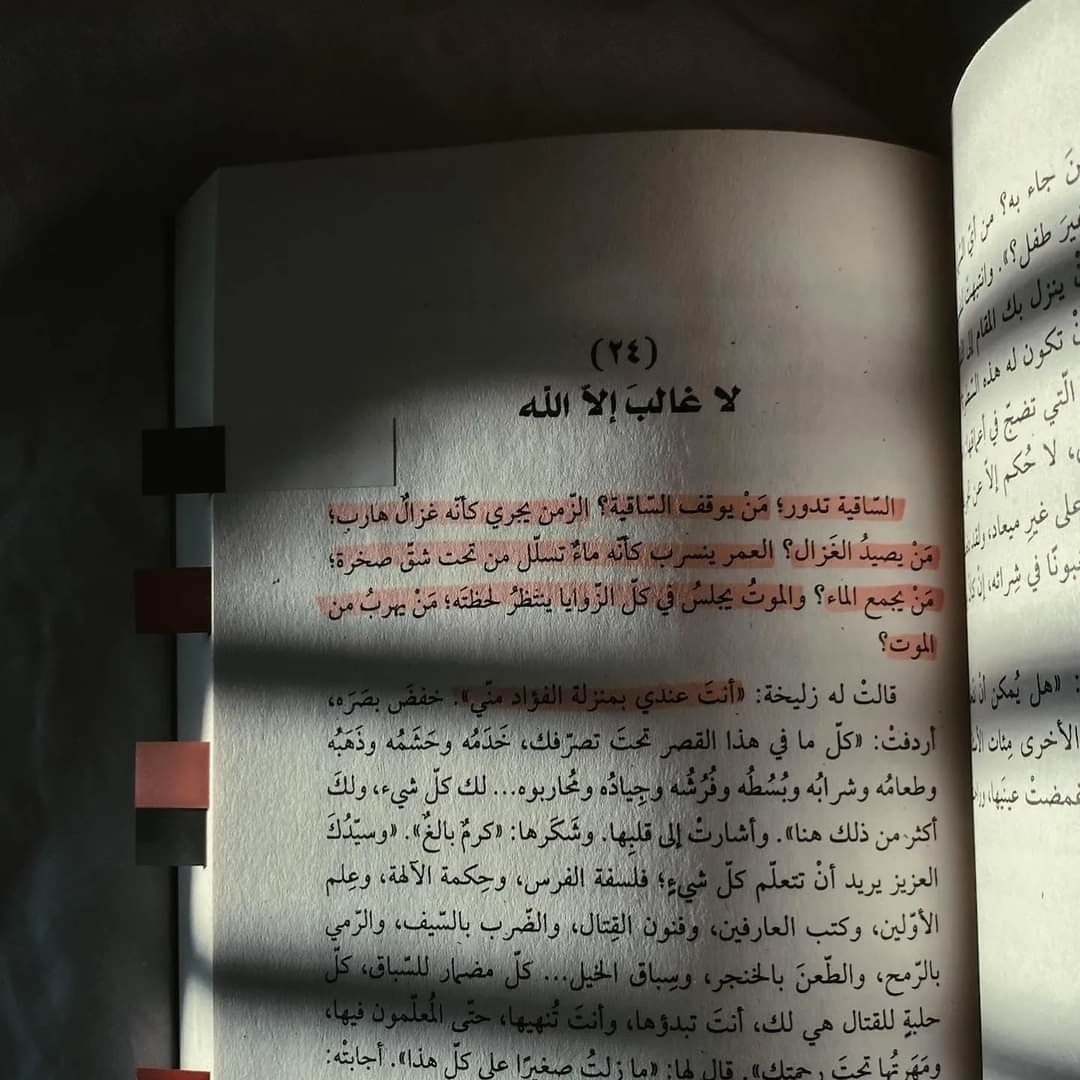 (٢٤)
لا غالبَ إلاّ الله
السّاقية تدور؛ مَنْ يوقف السّاقية؟ الزّمن يجري كأنّه غزالٌ هارب؛
مَنْ يصيدُ الغَزال؟ العمر ينسرب كأنّه ماءٌ تسلّل من تحت شقّ صخرة؛
مَنْ يجمع الماء؟ والموتُ يجلسُ في كلّ الزّوايا ينتظرُ لحظتَه؛ مَنْ يهربُ من
الموت؟
قالتْ له زليخة: «أنتَ عندي بمنزلة الفؤاد منّي». خفضَ بصَرَه،
أردفتْ: «كلّ ما في هذا القصر تحتَ تصرّفك، خَدَمُه وحَشَمُه وذَهَبُه
وطعامُه وشرابُه وبُسُطُه وفُرُشُه وجِيادُه ومُحاربوه... لك كلّ شيء، ولكَ
أكثر من ذلك هنا». وأشارتْ إلى قلبِها. وشَكَرها: «كرمٌ بالغٌ». «وسيّدُكَ
العزيز يريد أنْ تتعلّم كلّ شيءٍ؛ فلسفة الفرس، وحِكمة الآلهة، وعِلم
الأوّلين، وكتب العارفين، وفنون القِتال، والضّرب بالسّيف، والرّمي
بالرّمح، والطّعنَ بالخنجر، وسِباق الخيل... كلّ مضمار للسّباق، كلّ
حلبةٍ للقتال هي لك، أنتَ تبدؤها، وأنتَ تُنهيها، حتّى المُعلّمون فيها،
ومَهَرتُها تحتَ رحمتك». قال لها: «ما زلتُ صغيرًا على كلّ هذا». أجابتْه:
نَ جاء به؟ من أيّ
غيرَ طفل؟». وانتبهتْ
ينزل بك المقام إلى
تكون له هذه
الّتي تضجّ في أعماقها
لا حُكم إلاّ عن
على غيرِ ميعاد، ولقد
في شِرائه، إنْ كان
: «هل يُمكن أنْ
الأخرى مِئات
غمضتْ عينَيها،